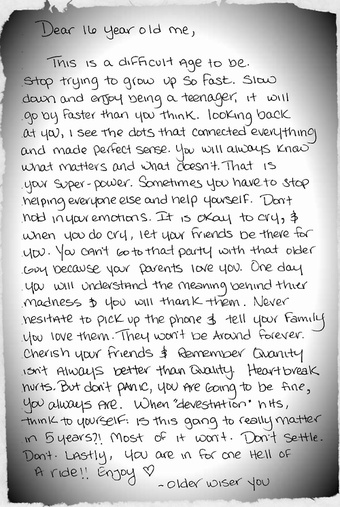 Dear 16 year old me,
This is a difficult age to be.
Stop trying to grow up so fast. Slow
down and enjoy being a teenager, it will
go by faster than you think. looking back
at you, I see the dots that connected everything
and made perfect sense. You will always know
what matters and what doesn't. That is
your super-power. Sometimes you have to stop
helping everyone else and help yourself. Don't
hold in your emotions. It is okay to cry, &
when you do cry, let your friends be there for
you. You can't go to that party with that older
guy because your parents love you. One day
you will understand the meaning behind thier
madness & you will thank them. Never
hesitate to pick up the phone & tell your Family
you love them. They won't be around forever.
Cherish your friends & Remember Quanity
isn't always better than Quality. Heartbreak
hurts. But don't panic, you are going to be fine,
you always are. When "devestation" hits,
think to yourself: is this going to really matter
in 5 years?! Most of it won't. Don't settle.
Don't. Lastly, you are in for one Hell of
A ride!! Enjoy ♡
- older wiser you